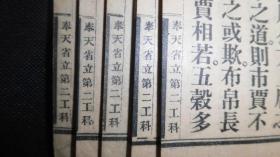 之道則市賈不
之或欺布帛長
賈相若五穀多
奉天省立第二工科
奉天省立第二工科
奉天省立第二工科
奉天省立第二工科
奉天省立第二工科